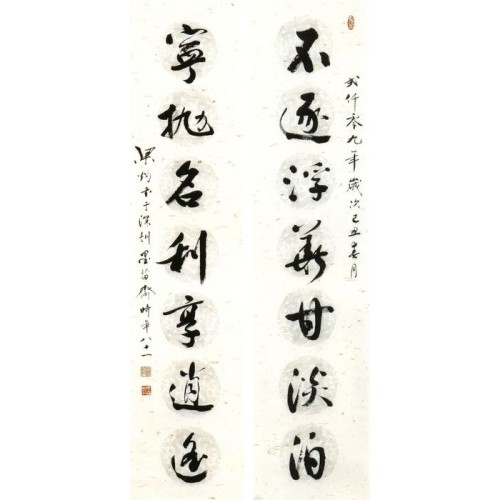 弍仟零九年歲次己丑春月
不逐浮華甘淡泊
寧抛名利享逍遥
梁书于深圳墨齋時年八十一